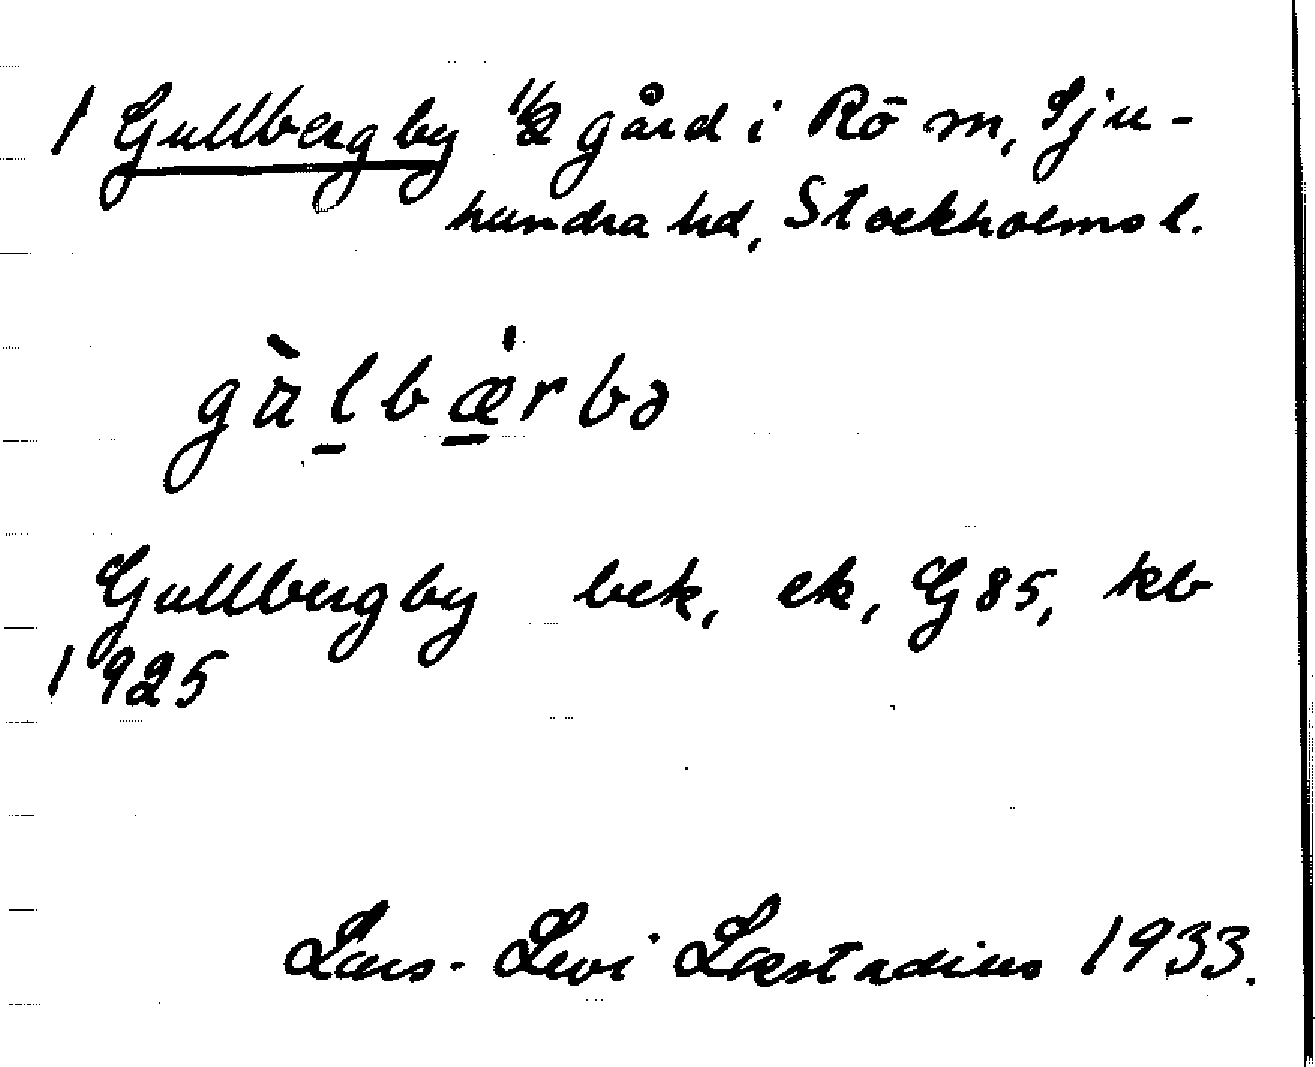 1 Gullbergby 1/2 gård i Rö m, Sju-
hundra hd, Stockholms l.
gàlbærbə
Gullbergby bek, ek, G 85, kb
1925
Lars-Levi Læstadius 1933.